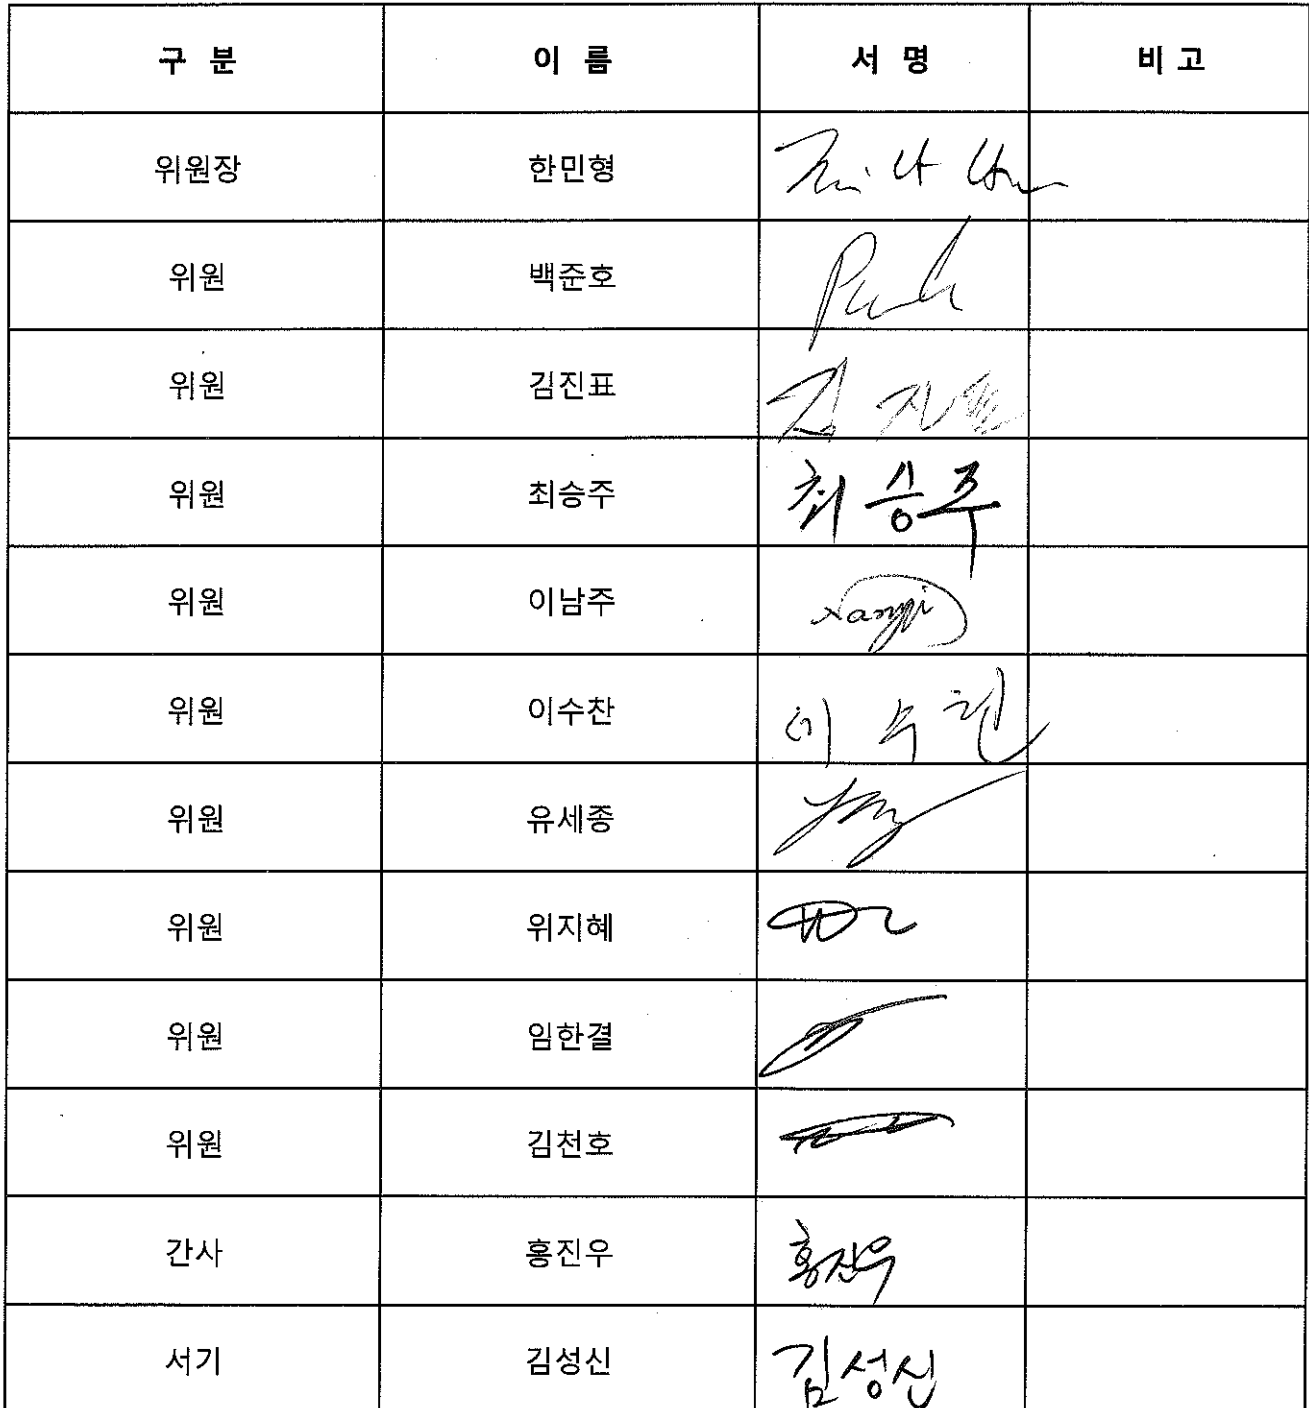 구 분 이 름 서 명 비 고
위원장 한민형
위원 백준호
위원 김진표 김진표
위원 최승주 최승주
위원 이남주
위원 이수찬
위원 유세종
위원 위지혜
위원 임한결
위원 김천호
간사 홍진우 홍진우
서기 김성신 김성신